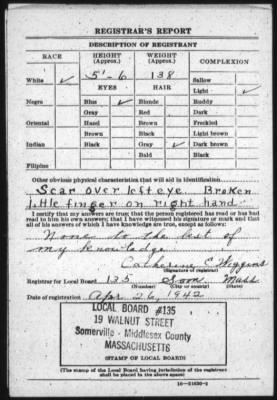 REGISTRAR'S REPORT
DESCRIPTION OF REGISTRANT
RACE
HEIGHT (Approx.)
WEIGHT (Approx.)
COMPLEXION
White ✓
5'-6
138
Sallow
EYES
HAIR
Light ✓
Negro
Blue ✓
Blonde
Ruddy
Gray
Red
Dark
Oriental
Hazel
Brown
Freckled
Brown
Black
Light brown
Indian
Black
Gray ✓
Dark brown
Bald
Black
Filipino
Other obvious physical characteristics that will aid in identification
Scar over left eye. Broken
little finger on right hand
I certify that my answers are true; that the person registered has read or has had
read to him his own answers; that I have witnessed his signature or mark and that
all of his answers of which I have knowledge are true, except as follows:
None to the best of
my knowledge
Catherine E. Wiggins
(Signature of registrar)
Registrar for Local Board 135 Som Mass
(Number) (City or county) (State)
Date of registration Apr 26, 1942
LOCAL BOARD #135
19 WALNUT STREET
Somerville - Middlesex County
MASSACHUSETTS
(STAMP OF LOCAL BOARD)
(The stamp of the Local Board having jurisdiction of the registrant
shall be placed in the above space)